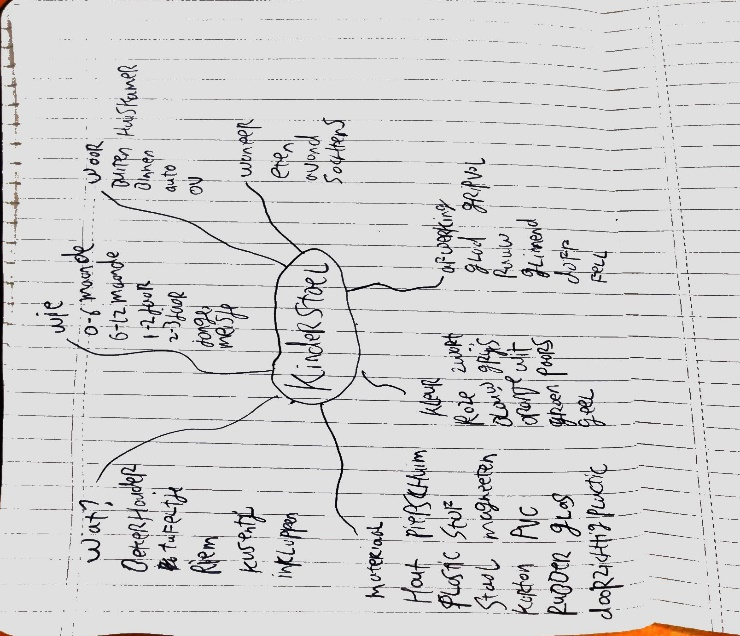 Kinderstoel
Wat?
BekerHouder
tufeltje
Riem
kusentje
inkluppen
wie
0-6 maande
6-12 maande
1-2 jaar
2-3 jaar
jonge
meisje
waar
Buiten Huiskamer
Binnen
auto
OV
waneer
eten
avond
Sochtens
afwerking
glad GRipvol
Ruuw
glimend
doff
Fell
kleur zwart
Roze grijs
Blauw wit
oranje paars
groen
geel
materiaal
Hout PiepSchuim
PLastic Stof
Staal magneeten
karton PVC
RuBBER glas
dooRzichtig plastic